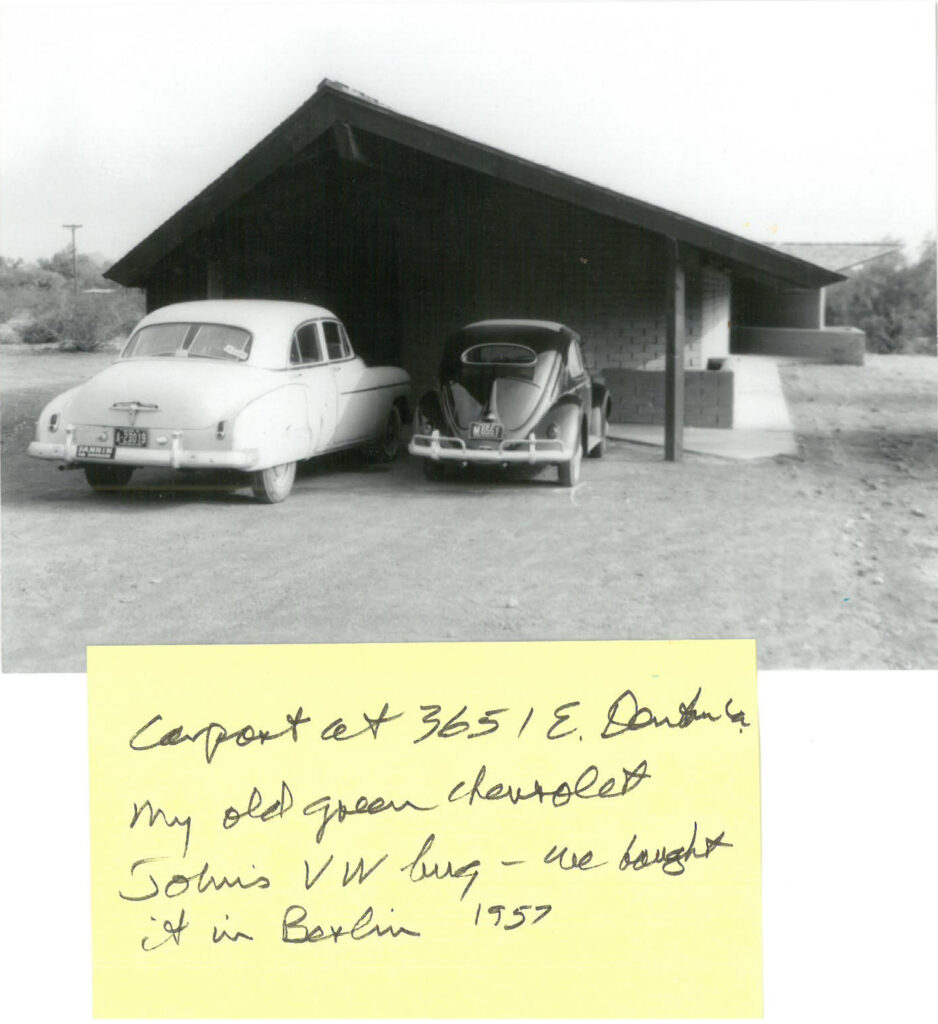 A-23019
FANNIN
Carport at 3651 E. Denton La.
My old green Chevrolet
John's VW bug – we bought
it in Berlin 1957